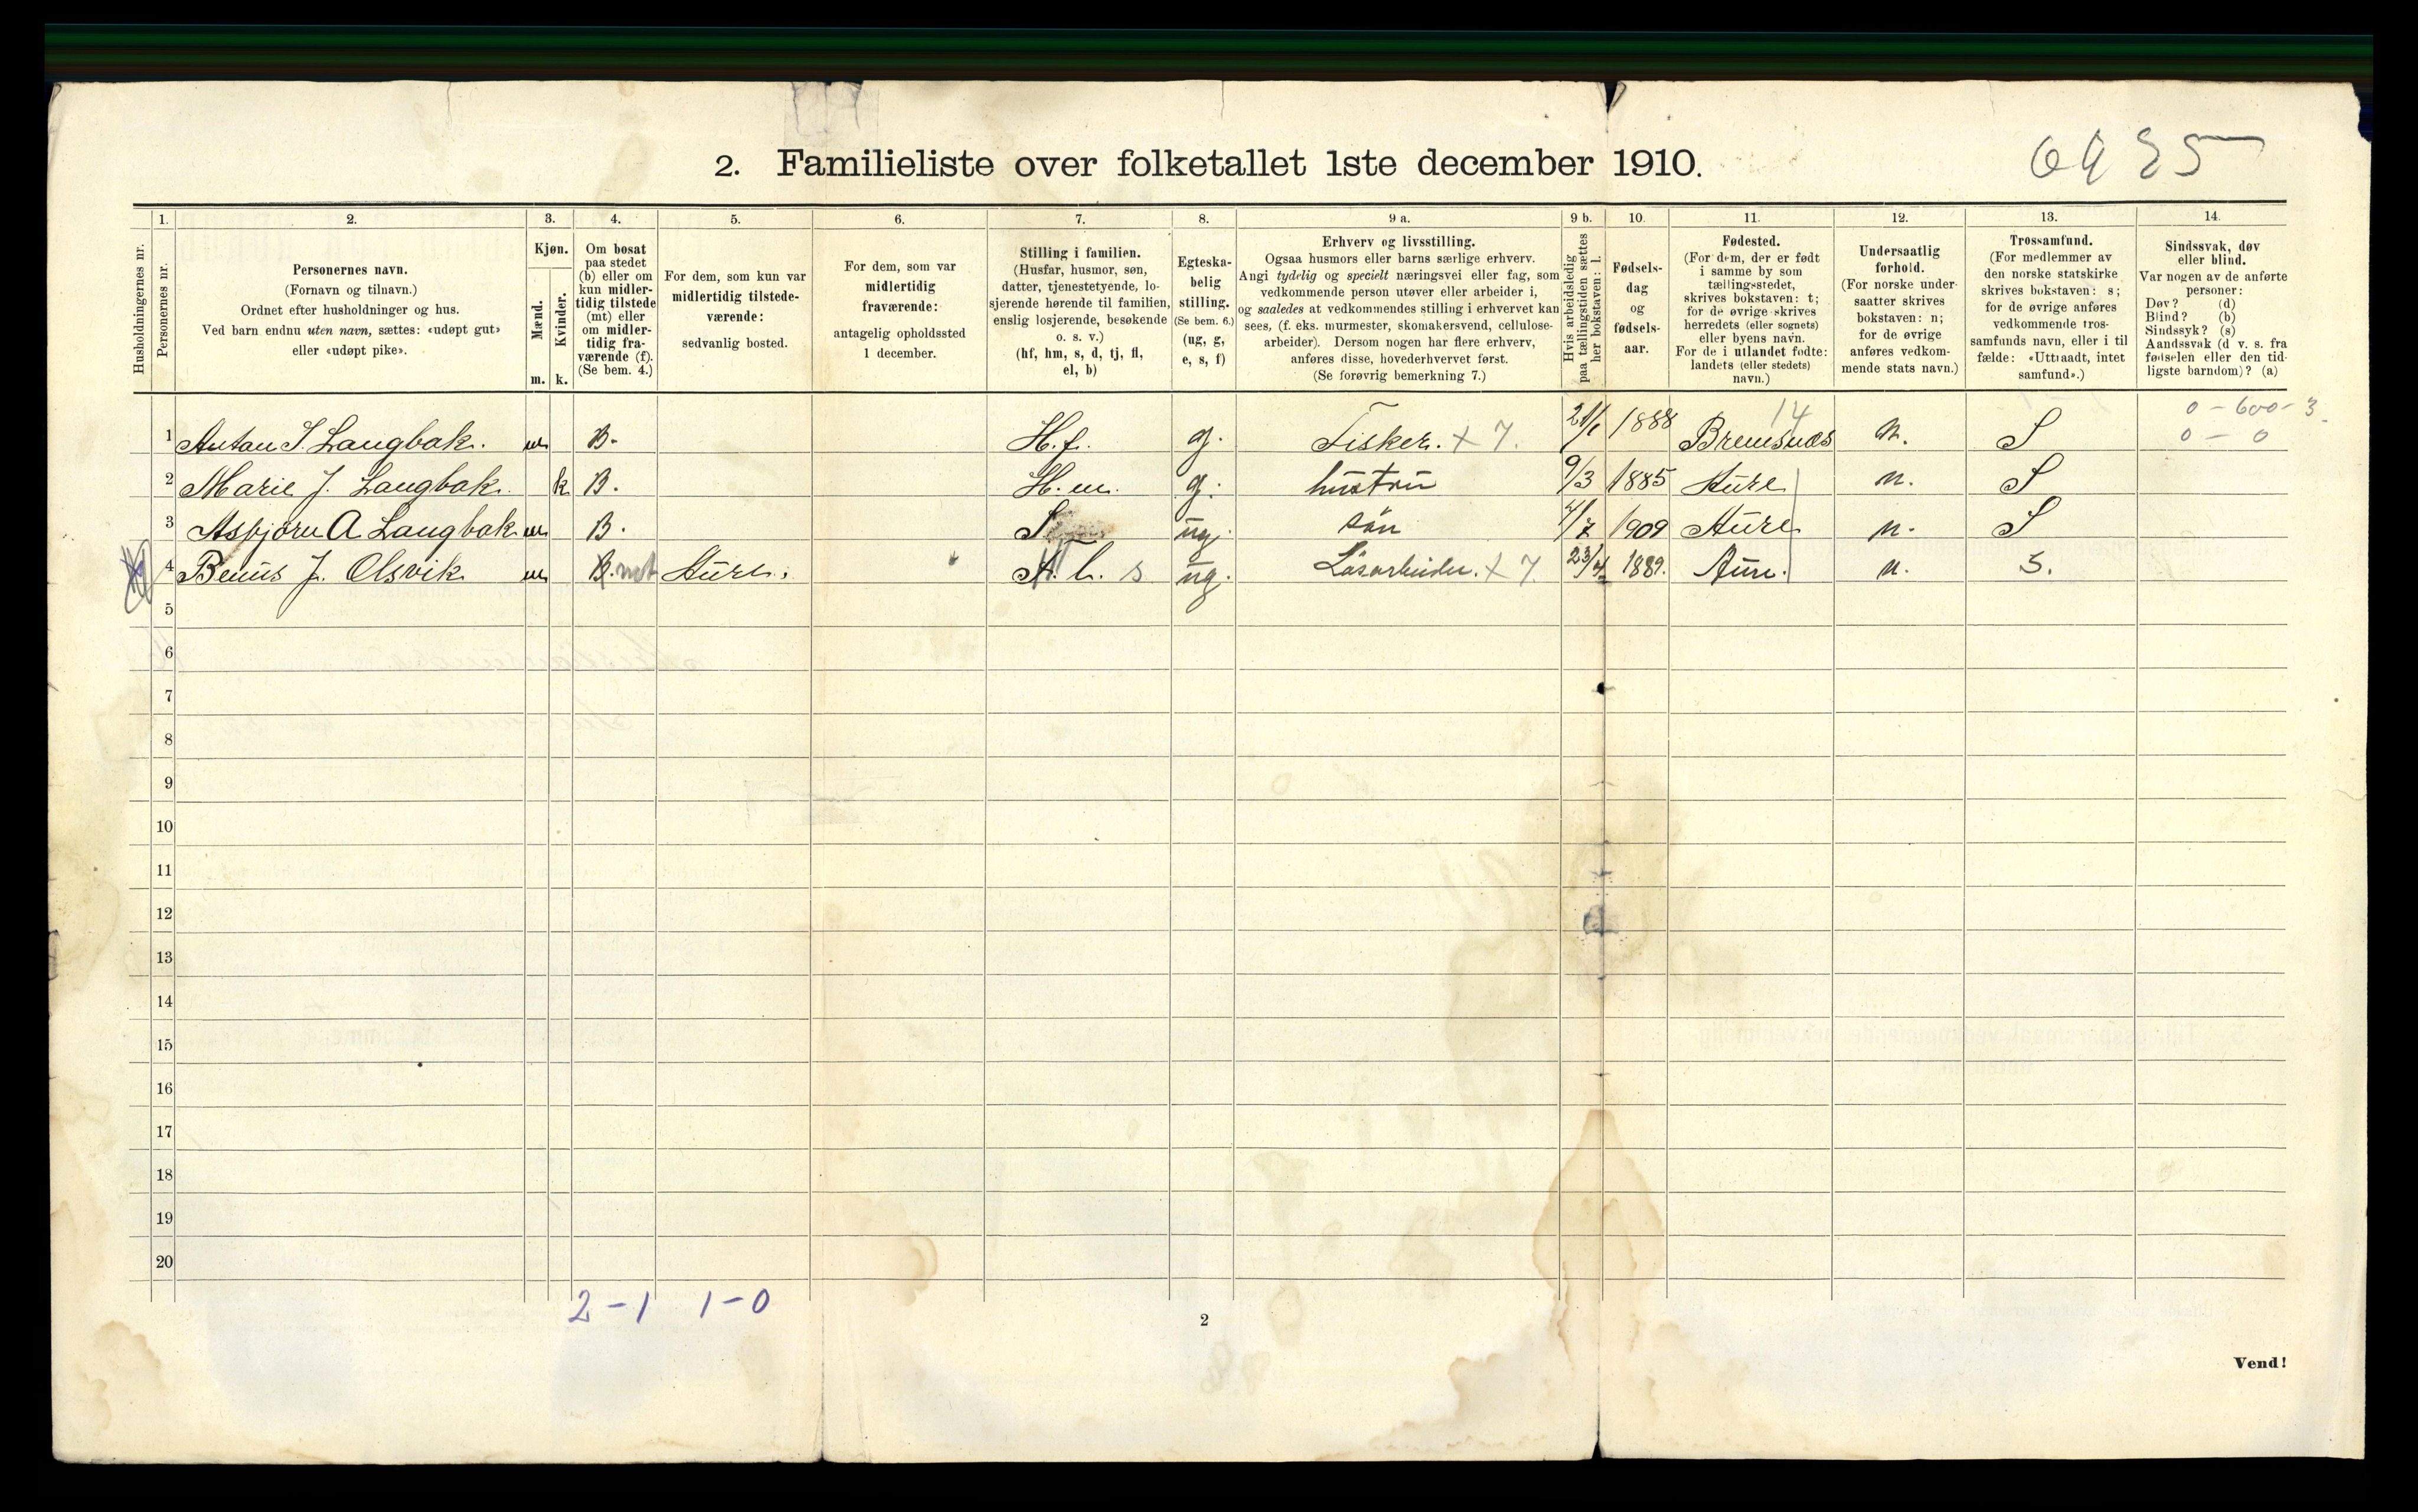 2. Familieliste over folketallet 1ste december 1910.
1. 2. 3. 4. 5. 6. 7. 8. 9 a. 9 b. 10. 11. 12. 13. 14.
Husholdningernes nr.
Personernes nr.
Personernes navn.
(Fornavn og tilnavn.)
Ordnet efter husholdninger og hus.
Ved barn endnu uten navn, sættes: «udøpt gut»
eller «udøpt pike».
Kjøn.
Mænd.
Kvinder.
m. k.
Om bosat
paa stedet
(b) eller om
kun midler-
tidig tilstede
(mt) eller
om midler-
tidig fra-
værende (f).
(Se bem. 4.)
For dem, som kun var
midlertidig tilstede-
værende:
sedvanlig bosted.
For dem, som var
midlertidig
fraværende:
antagelig opholdssted
1 december.
Stilling i familien.
(Husfar, husmor, søn,
datter, tjenestetyende, lo-
sjerende hørende til familien,
enslig losjerende, besøkende
o. s. v.)
(hf, hm, s, d, tj, fl,
el, b)
Egteska-
belig
stilling.
(Se bem. 6.)
(ug, g,
e, s, f)
Erhverv og livsstilling.
Ogsaa husmors eller barns særlige erhverv.
Angi tydelig og specielt næringsvei eller fag, som
vedkommende person utøver eller arbeider i,
og saaledes at vedkommendes stilling i erhvervet kan
sees, (f. eks. murmester, skomakersvend, cellulose-
arbeider). Dersom nogen har flere erhverv,
anføres disse, hovederhvervet først.
(Se forøvrig bemerkning 7.)
Hvis arbeidsledig
paa tællingstiden sættes
her bokstaven: l.
Fødsels-
dag
og
fødsels-
aar.
Fødested.
(For dem, der er født
i samme by som
tællingsstedet,
skrives bokstaven: t;
for de øvrige skrives
herredets (eller sognets)
eller byens navn.
For de i utlandet fødte:
landets (eller stedets)
navn.)
Undersaatlig
forhold.
(For norske under-
saatter skrives
bokstaven: n;
for de øvrige
anføres vedkom-
mende stats navn.)
Trossamfund.
(For medlemmer av
den norske statskirke
skrives bokstaven: s;
for de øvrige anføres
vedkommende tros-
samfunds navn, eller i til
fælde: «Uttraadt, intet
samfund».)
Sindssvak, døv
eller blind.
Var nogen av de anførte
personer:
Døv? (d)
Blind? (b)
Sindssyk? (s)
Aandssvak (d v. s. fra
fødselen eller den tid-
ligste barndom)? (a)
14 0-600-3
1 Antan S. Langbak. m B. H.f. g. Fisker. x 7. 21/1 1888 Bremsnæs n. S 0-0
2 Marie J. Langbak. k B. H.m. g. hustru 9/3 1885 Aure n. S
3 Asbjörn A Langbak m B. S ug. sön 4/7 1909 Aure n. S
4 Benus J. Olsvik m B. mt Aure. ug. Lösarbeider. x 7. 1889. Aure. n. S.
5
6
7
8
9
10
11
12
13
14
15
16
17
18
19
20
2-1 1-0
2
Vend!